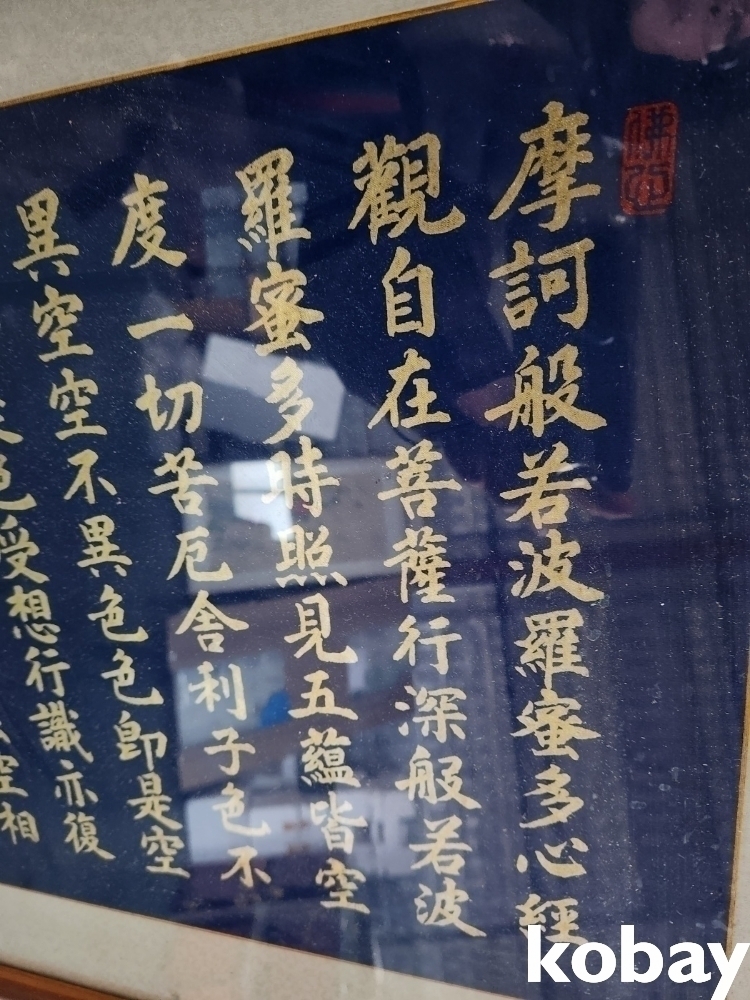 摩訶般若波羅蜜多心經
觀自在菩薩行深般若波
羅蜜多時照見五蘊皆空
度一切苦厄舍利子色不
異空空不異色色卽是空
色受想行識亦復
空相
kobay